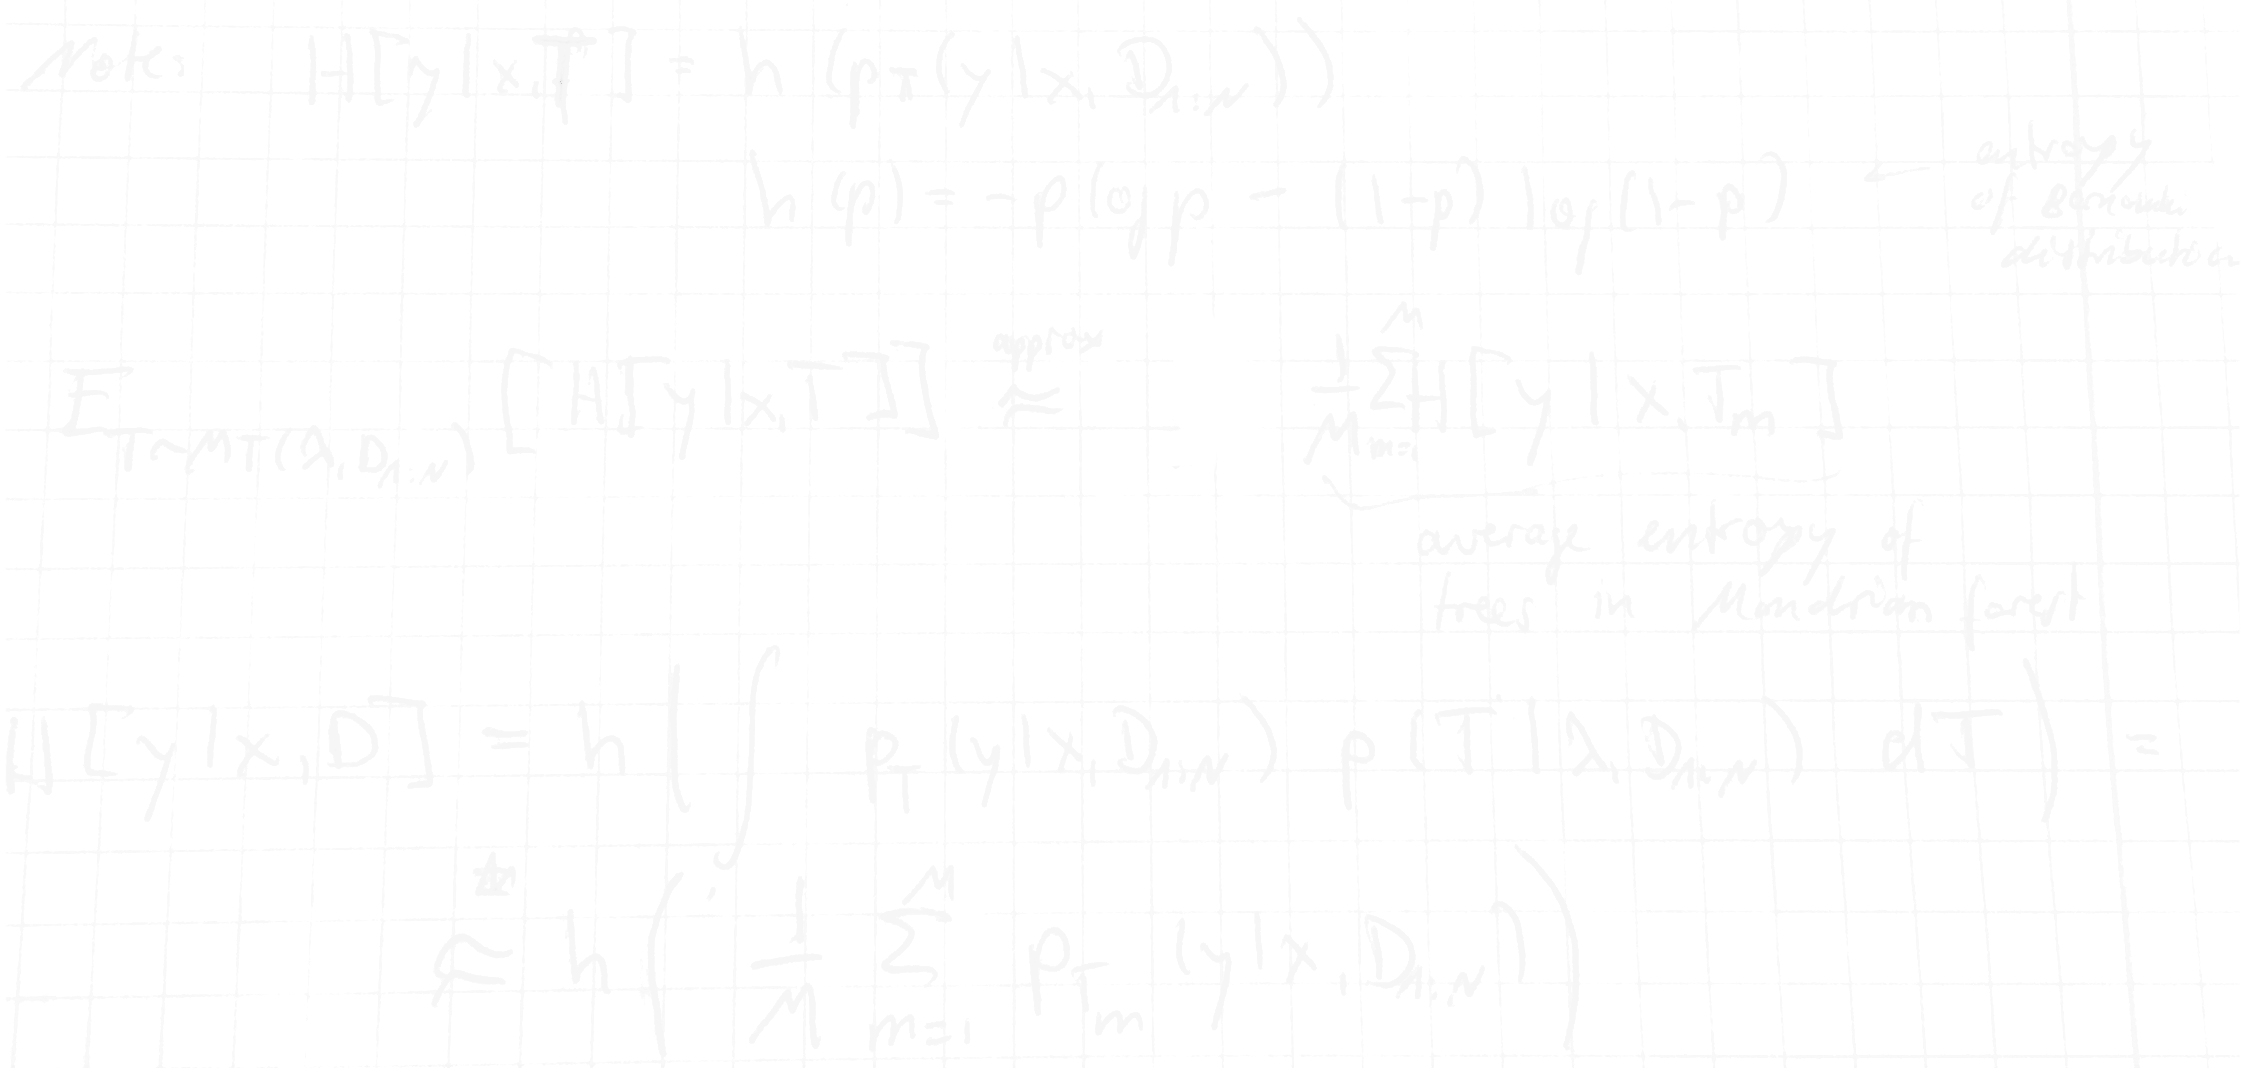 Note: H[y|x,T] = h(p_T(y|x, D_{1:N}))
h(p) = -p log p - (1-p) log(1-p) ← entropy
of Bernoulli
distribution
E_{T~MT(λ, D_{1:N})} [H[y|x,T]] ≈^{approx} 1/M Σ_{m=1}^{M} H[y|x,T_m]
average entropy of
trees in Mondrian forest
H[y|x,D] = h(∫ p_T(y|x, D_{1:N}) p(T|λ, D_{1:N}) dT) =
≈ h(1/M Σ_{m=1}^{M} p_{T_m}(y|x, D_{1:N}))